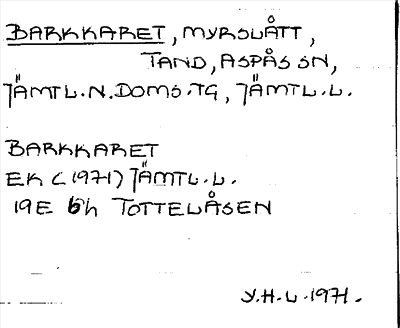 BARKKARET, MYRSLÅTT,
TAND, ASPÅS SN,
JÄMTL.N.DOMS.TG, JÄMTL.L.
BARKKARET
EK (1971) JÄMTL.L.
19E 6h TOTTELÅSEN
Y.H-L.1971.